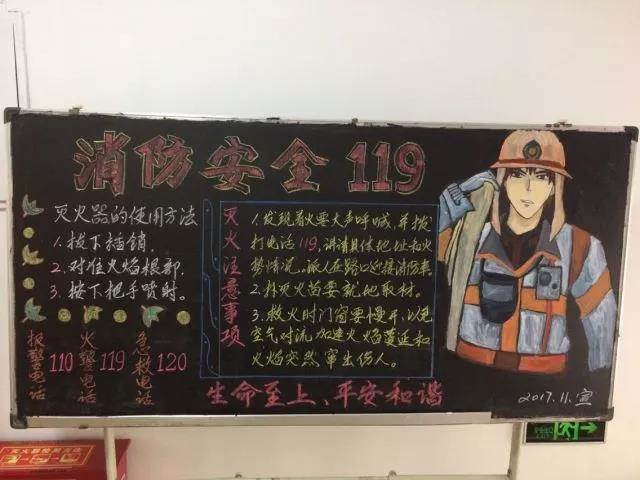 消防安全119
灭火器的使用方法
1.拔下插销.
2.对住火焰根部.
3.按下把手喷射.
报警电话 110
火警电话 119
急救电话 120
灭火注意事项
1.发现着火要大声呼喊,并拨
打电话119,讲清具体地址和火
势情况。派人在路口迎接消防车.
2.扑灭火苗要就地取材。
3.救火时门窗要慢开,以免
空气对流加速火焰蔓延和
火焰突然窜出伤人。
生命至上、平安和谐
2017.11.宣